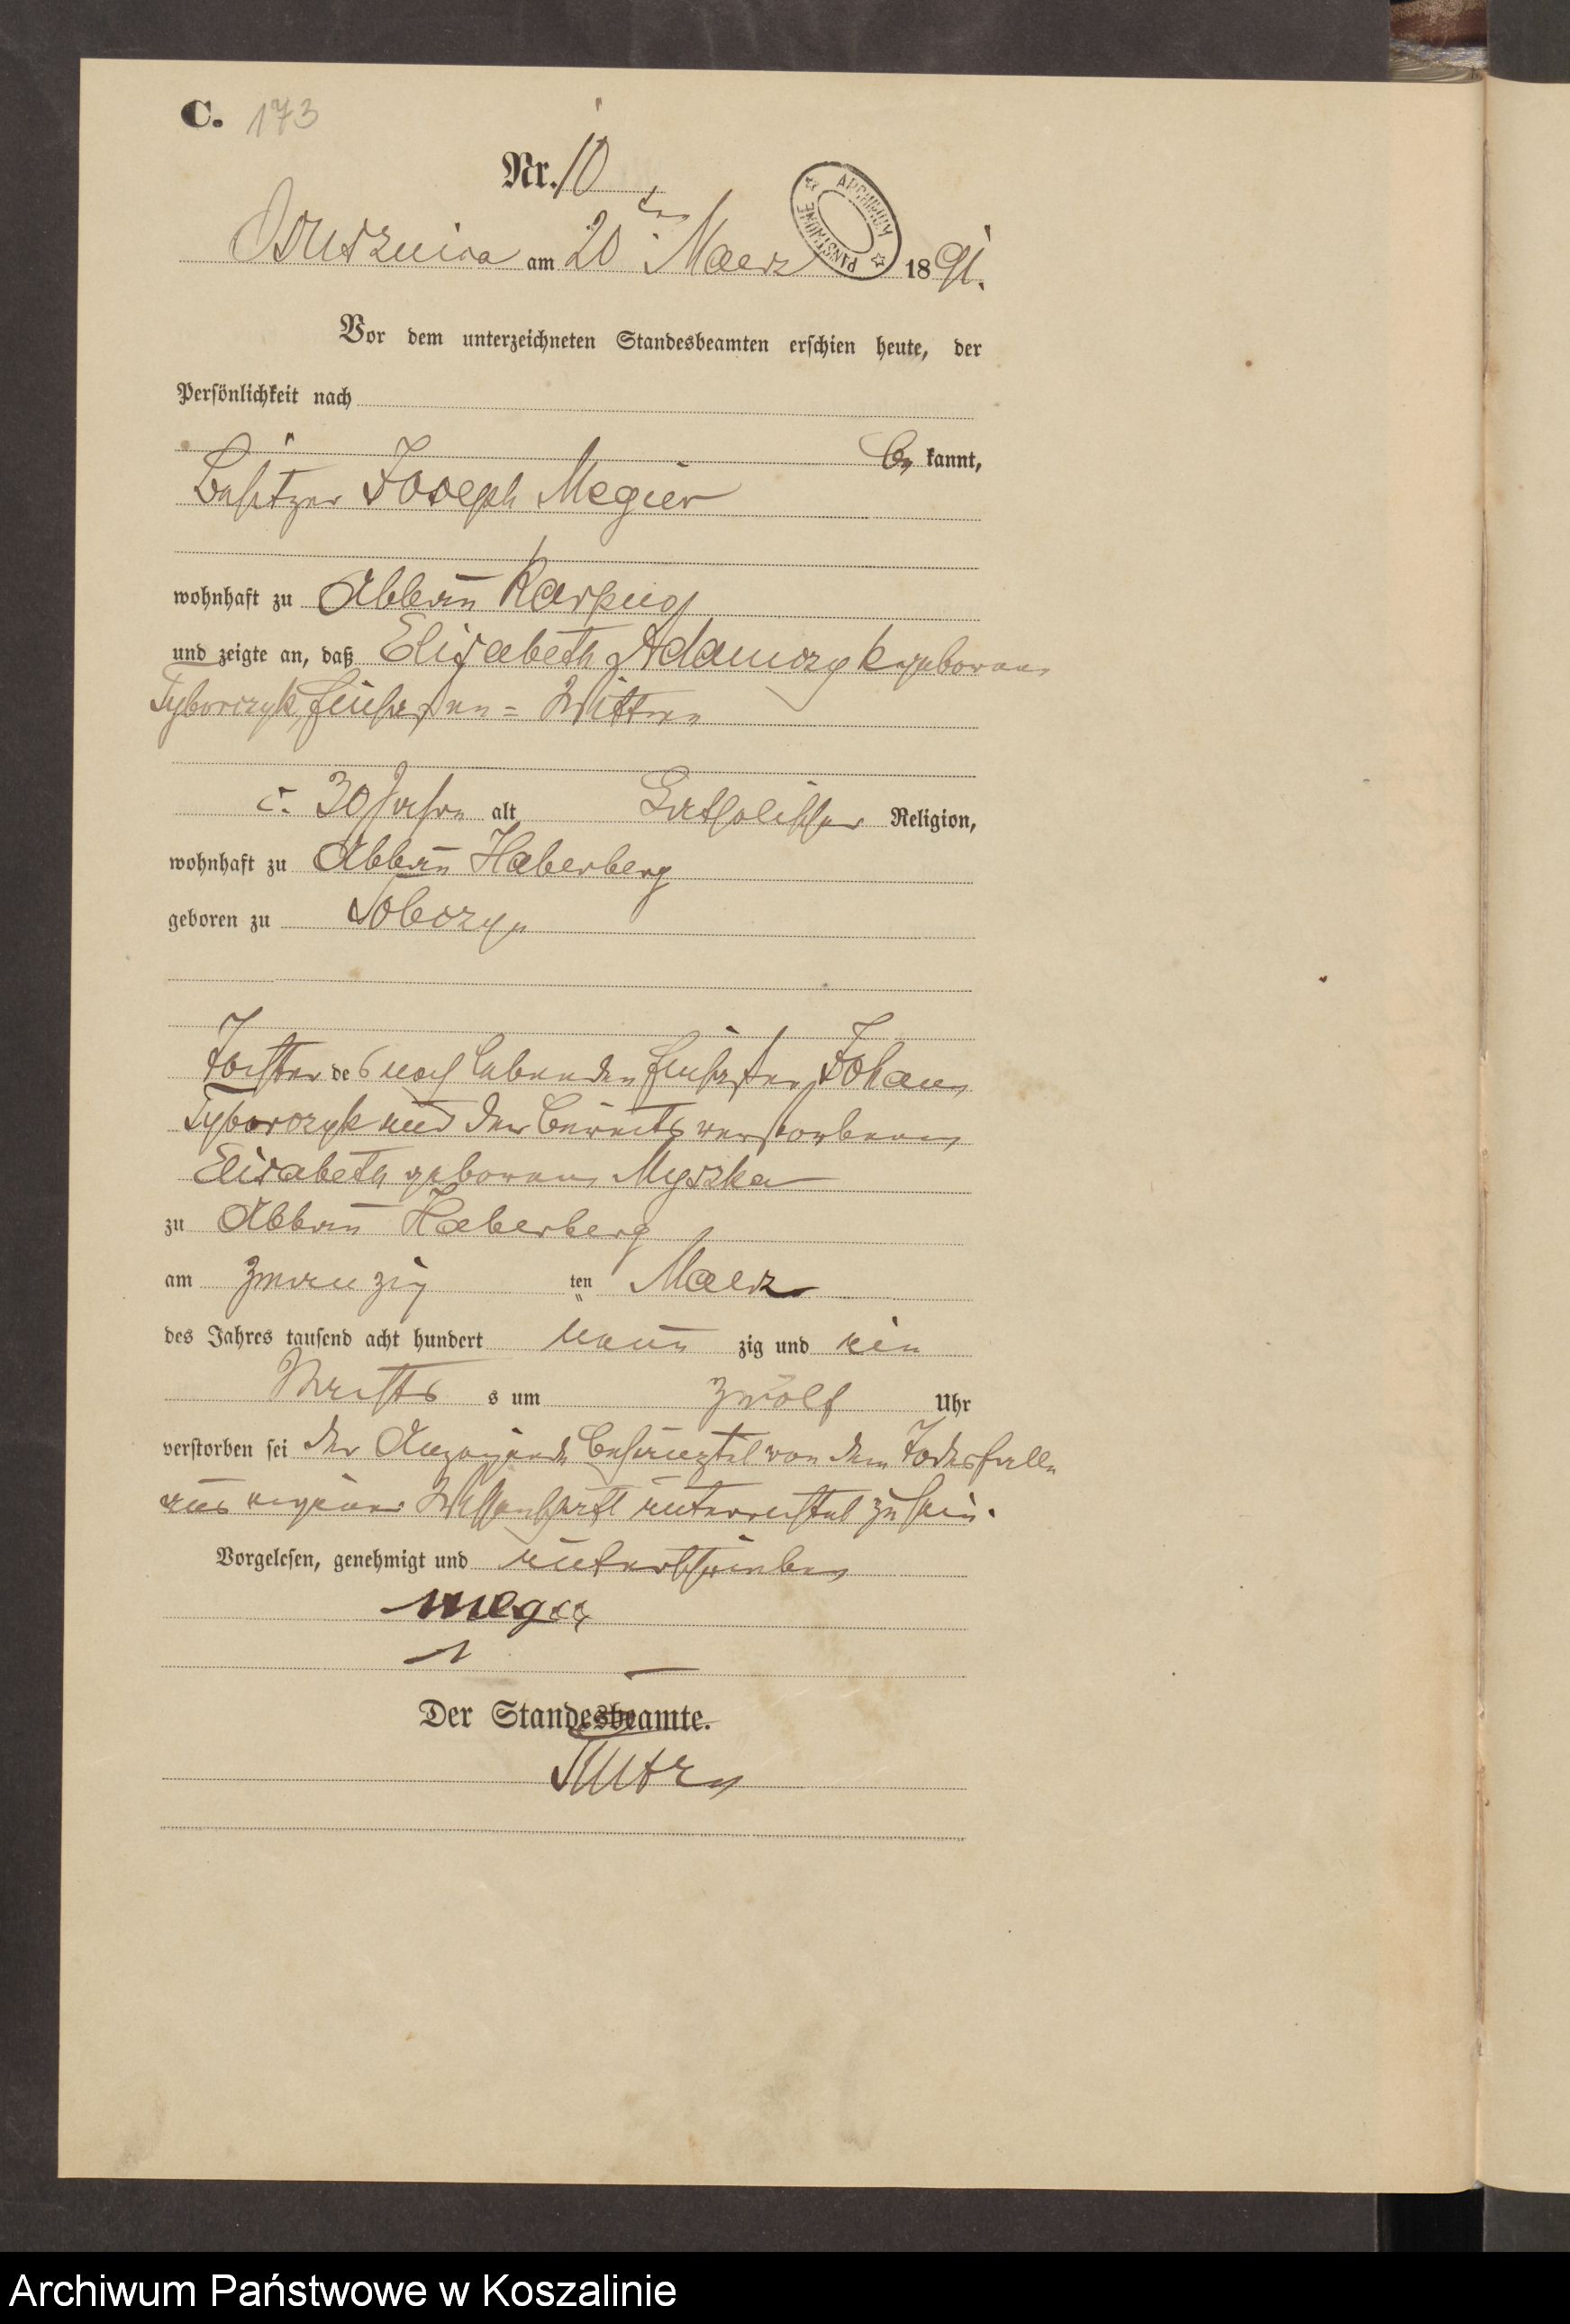 C. 173
Nr. 10
Ossusznica am 20ten Maerz 1891.
ARCHIWUM PAŃSTWOWE
Vor dem unterzeichneten Standesbeamten erschien heute, der
Persönlichkeit nach
be kannt,
Besitzer Joseph Megier
wohnhaft zu Abbau Karpno
und zeigte an, daß Elisabeth Adamczyk geborene
Tyborczyk, Einsassen= Wittwe
c. 30 Jahre alt Katholischer Religion,
wohnhaft zu Abbau Haberberg
geboren zu Soboczyn
Tochter des noch lebenden Einsassen Johann
Tyborczyk und der bereits verstorbenen
Elisabeth geborene Myszka
zu Abbau Haberberg
am zwanzig ten Maerz
des Jahres tausend acht hundert neun zig und ein
Nachts s um zwölf Uhr
verstorben sei der Anzeigende von dem Todesfalle
aus eigener Wissenschaft unterrichtet zu sein.
Vorgelesen, genehmigt und unterschrieben
Der Standesbeamte.
Archiwum Państwowe w Koszalinie